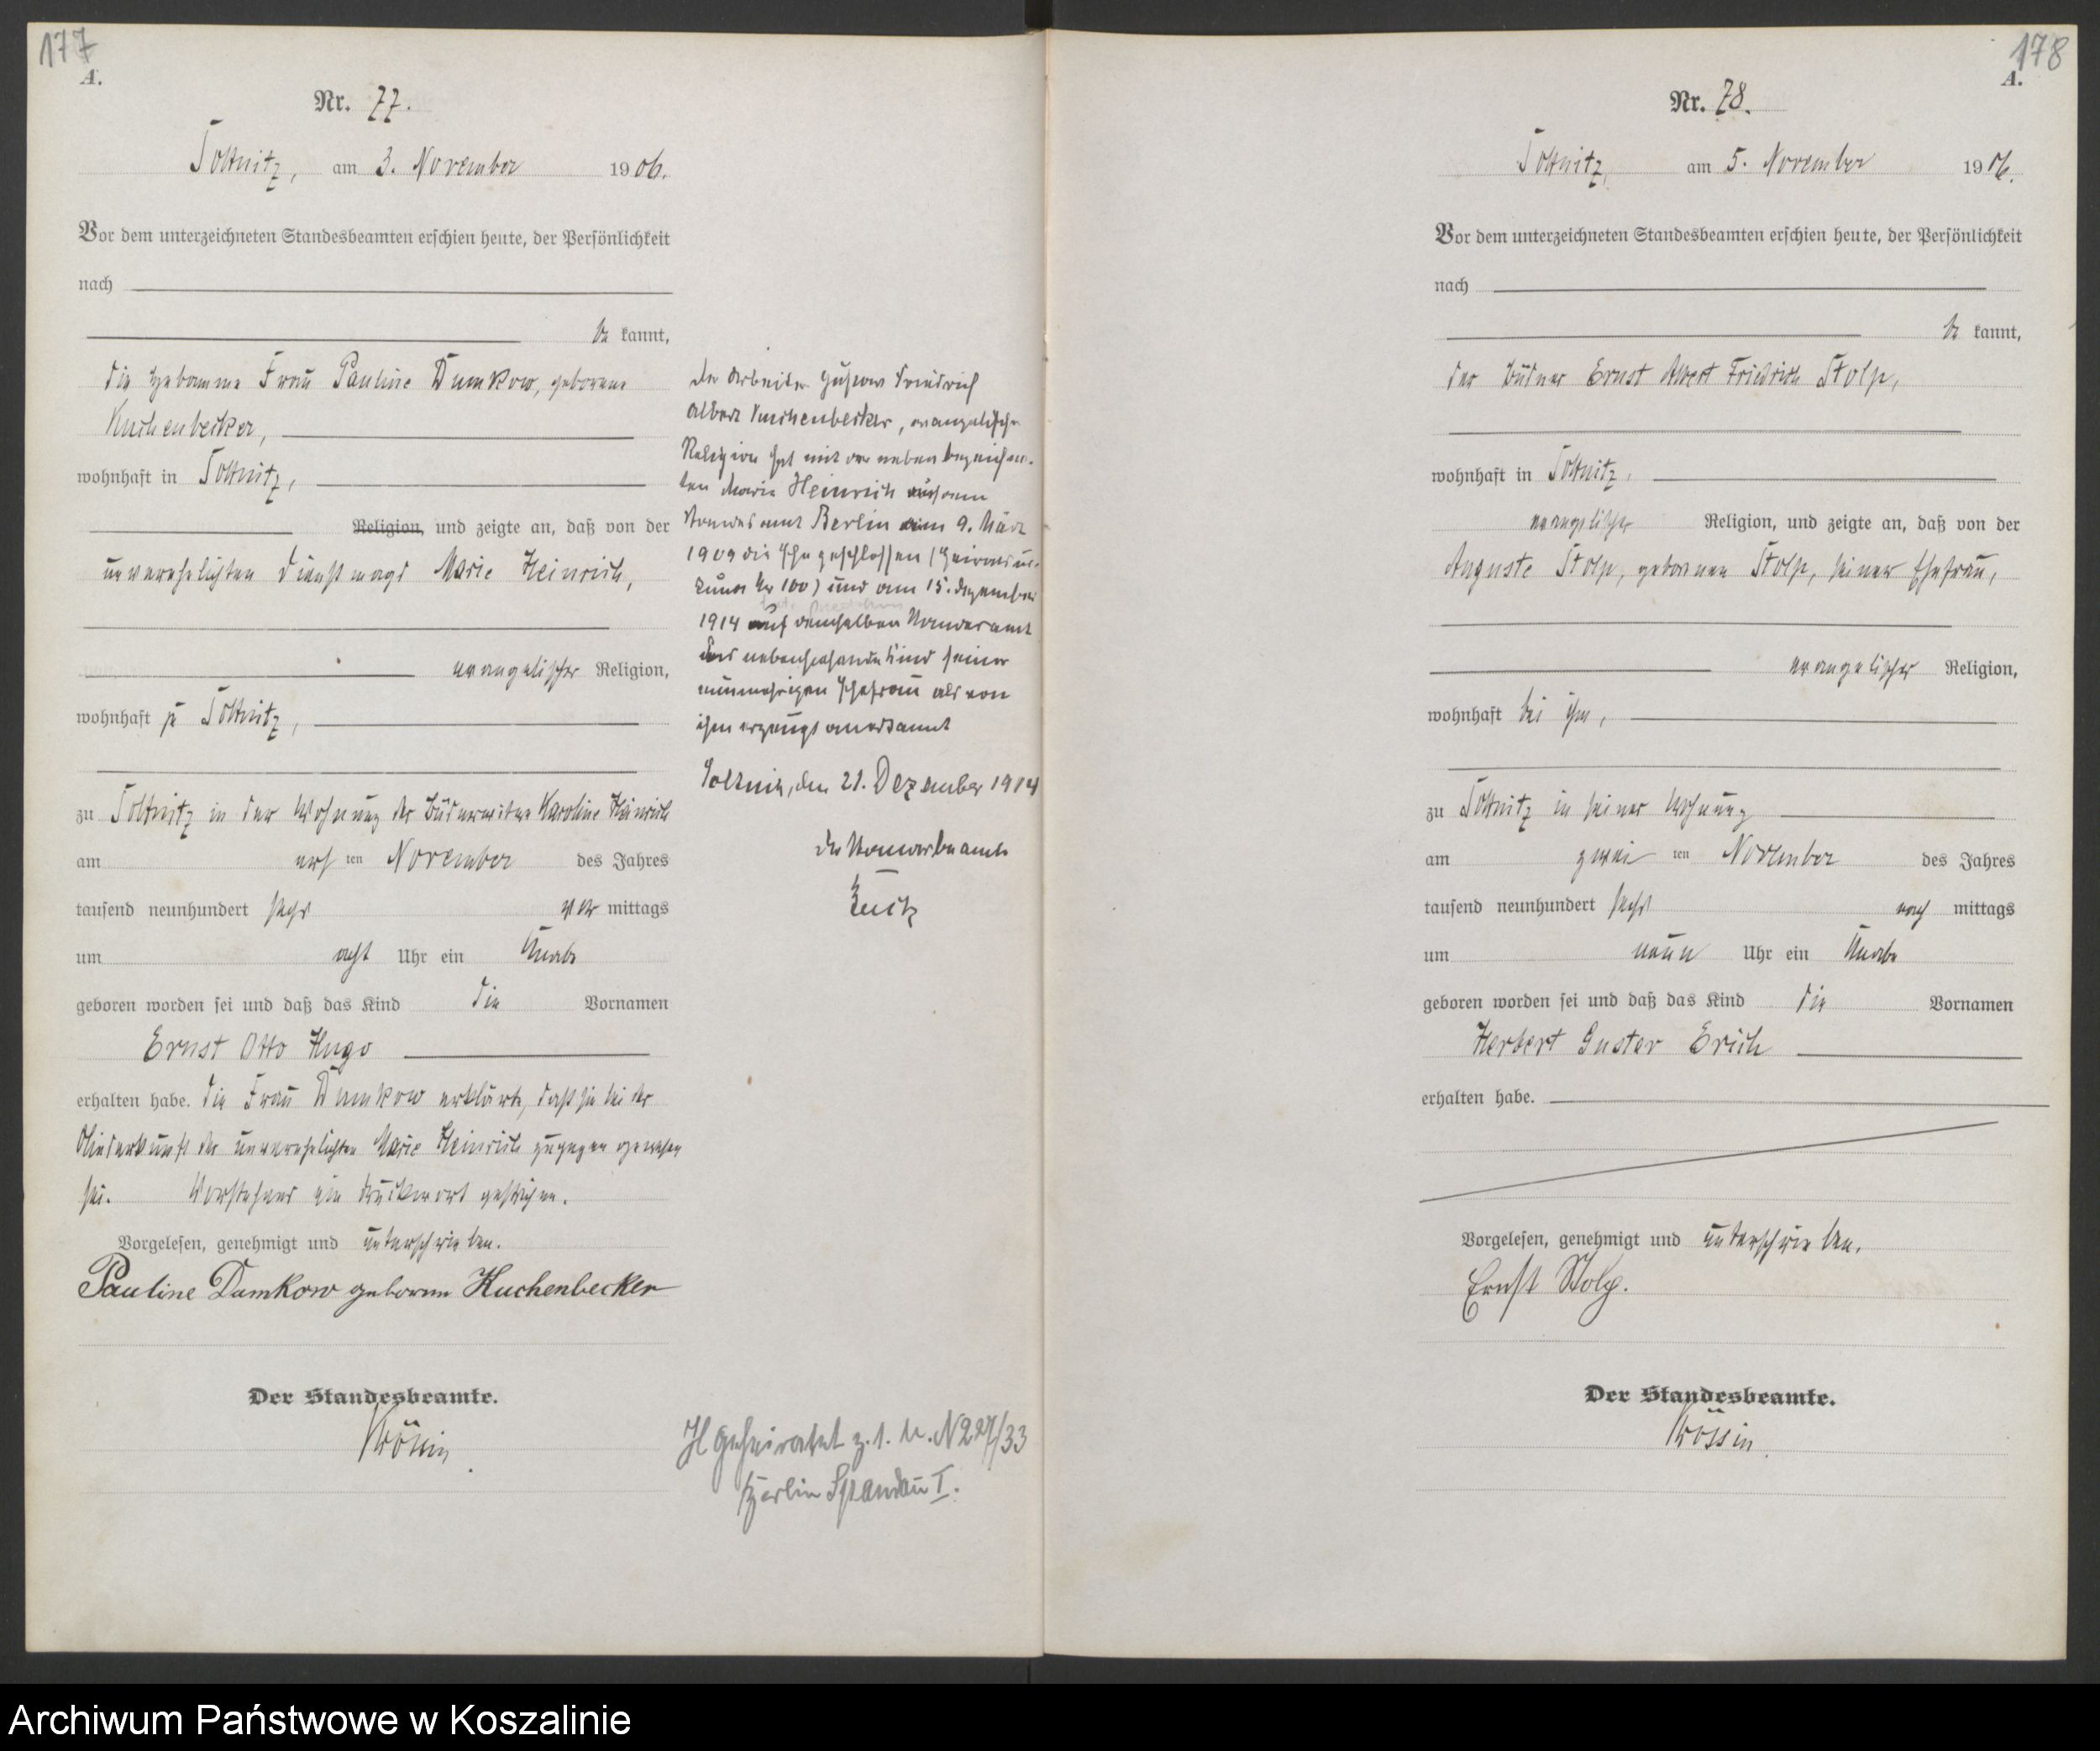 177
A.
Nr. 77.
Soltnitz, am 3. November 1906.
Vor dem unterzeichneten Standesbeamten erschien heute, der Persönlichkeit
nach
be kannt,
die Hebamme Frau Pauline Dumkow, geborene
Kuchenbecker,
wohnhaft in Soltnitz,
Religion, und zeigte an, daß von der
unverehelichten Dienstmagd Marie Heinrich,
evangelischer Religion,
wohnhaft zu Soltnitz,
zu Soltnitz in der Wohnung der Büdnerwitwe Karoline Heinrich
am ersten November des Jahres
tausend neunhundert sechs vor mittags
um acht Uhr ein Knabe
geboren worden sei und daß das Kind die Vornamen
Ernst Otto Hugo
erhalten habe. Die Frau Dumkow erklärte, daß sie bei der
Niederkunft der unverehelichten Marie Heinrich zugegen gewesen
sei. Vorstehend ein Druckwort gestrichen.
Vorgelesen, genehmigt und unterschrieben.
Pauline Dumkow geborene Kuchenbecker
Der Standesbeamte.
Krössin.
Der Arbeiter Gustav Friedrich
Albert Kuchenbecker, evangelischer
Religion hat mit der nebenbezeichne-
ten Marie Heinrich aus dem
Standesamt Berlin am 9. März
1909 die Ehe geschlossen (Heiratsur-
kunde Nr 100) und am 15. Dezember
1914 auf demselben Standesamt
das nebenstehende Kind seiner
nunmehrigen Ehefrau als von
ihm erzeugt anerkannt
Soltnitz, den 21. Dezember 1914
Der Standesbeamte
H geheiratet z. 1. M. N 227/33
Berlin Spandau I.
178
A.
Nr. 78.
Soltnitz, am 5. November 1906.
Vor dem unterzeichneten Standesbeamten erschien heute, der Persönlichkeit
nach
be kannt,
der Büdner Ernst Albert Friedrich Stolp,
wohnhaft in Soltnitz,
evangelischer Religion, und zeigte an, daß von der
Auguste Stolp, geborenen Stolp, seiner Ehefrau,
evangelischer Religion,
wohnhaft bei ihm,
zu Soltnitz in seiner Wohnung
am zwei ten November des Jahres
tausend neunhundert sechs nach mittags
um neun Uhr ein Knabe
geboren worden sei und daß das Kind die Vornamen
Herbert Gustav Erich
erhalten habe.
Vorgelesen, genehmigt und unterschrieben.
Ernst Stolp.
Der Standesbeamte.
Krössin.
Archiwum Państwowe w Koszalinie